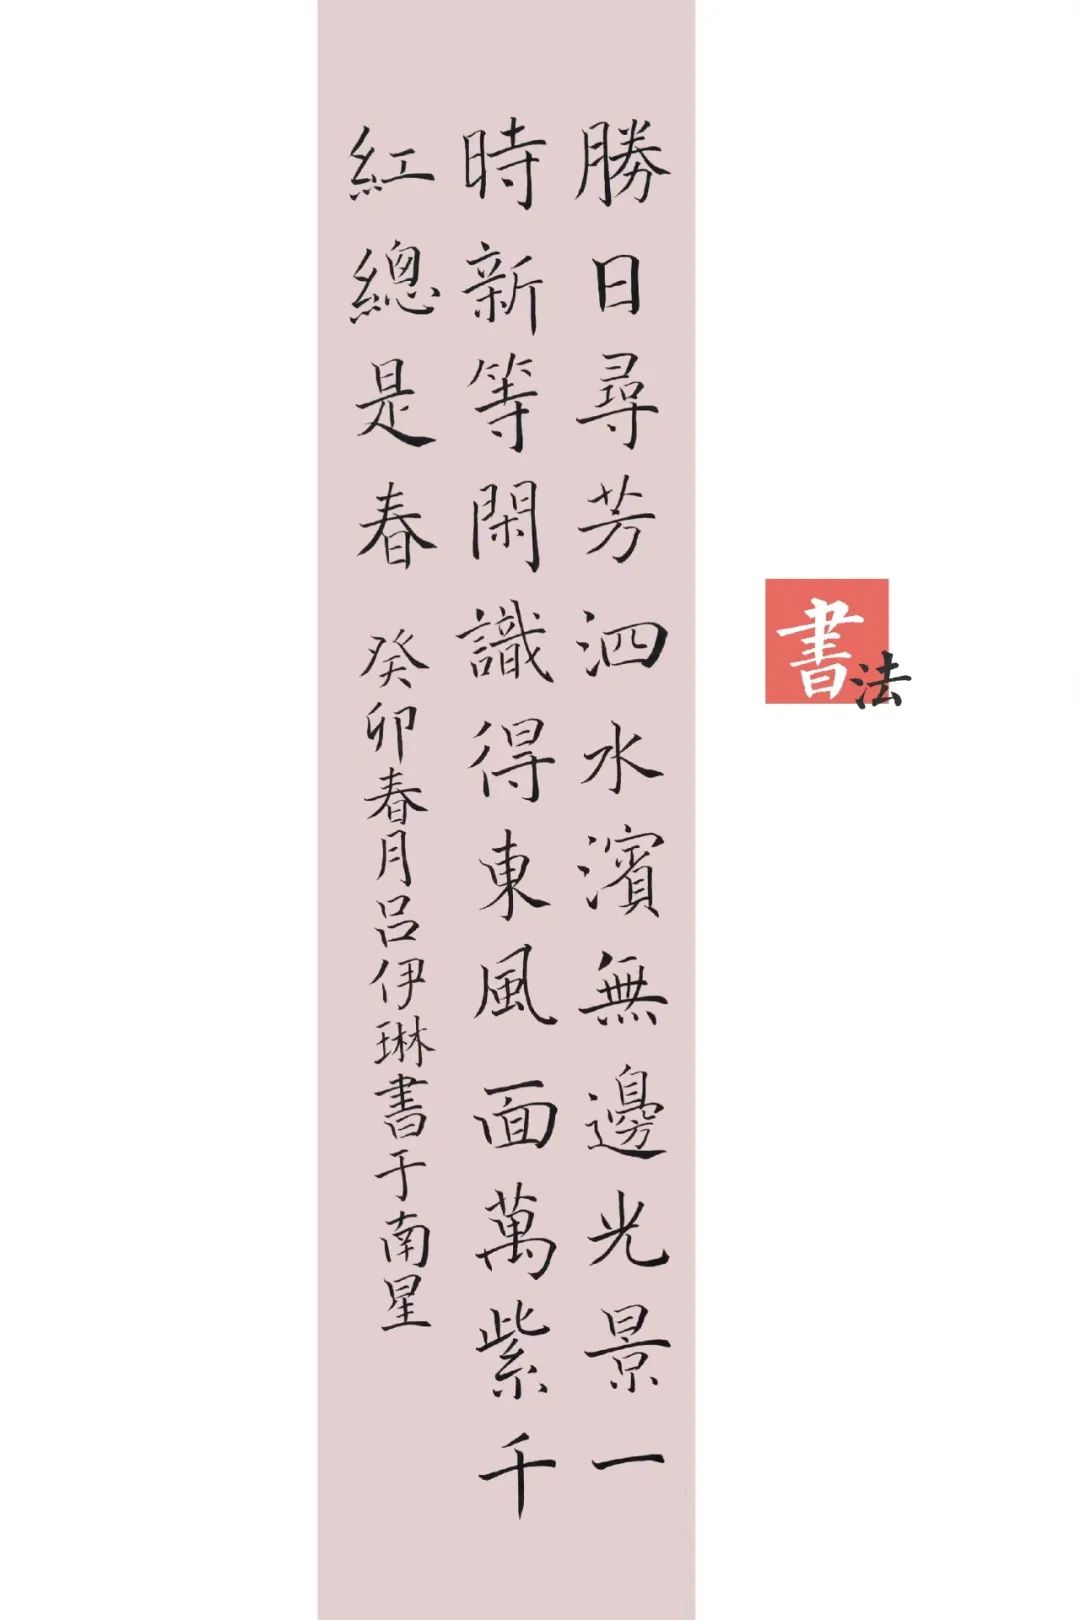 勝日尋芳泗水濱無邊光景一
時新等閑識得東風面萬紫千
紅總是春 癸卯春月吕伊琳書于南星
書法